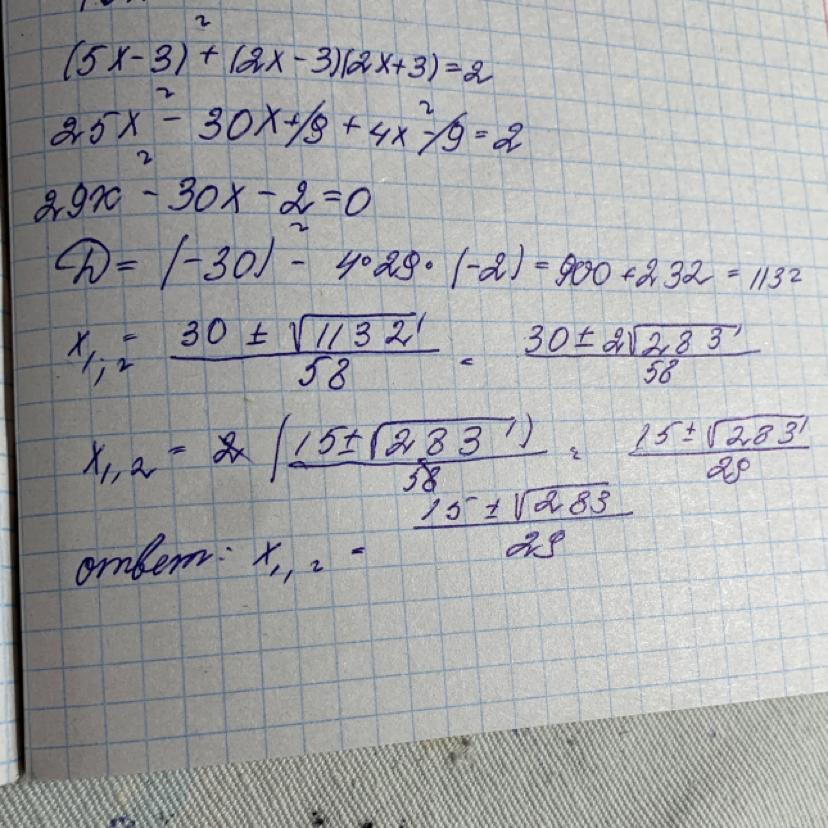 (5x-3)² + (2x-3)(2x+3) = 2
25x² - 30x + 9 + 4x² - 9 = 2
29x² - 30x - 2 = 0
D = (-30)² - 4·29·(-2) = 900 + 232 = 1132
x₁,₂ = (30 ± √1132)/58 = (30 ± 2√283)/58
x₁,₂ = 2(15 ± √283)/58 = (15 ± √283)/29
ответ: x₁,₂ = (15 ± √283)/29